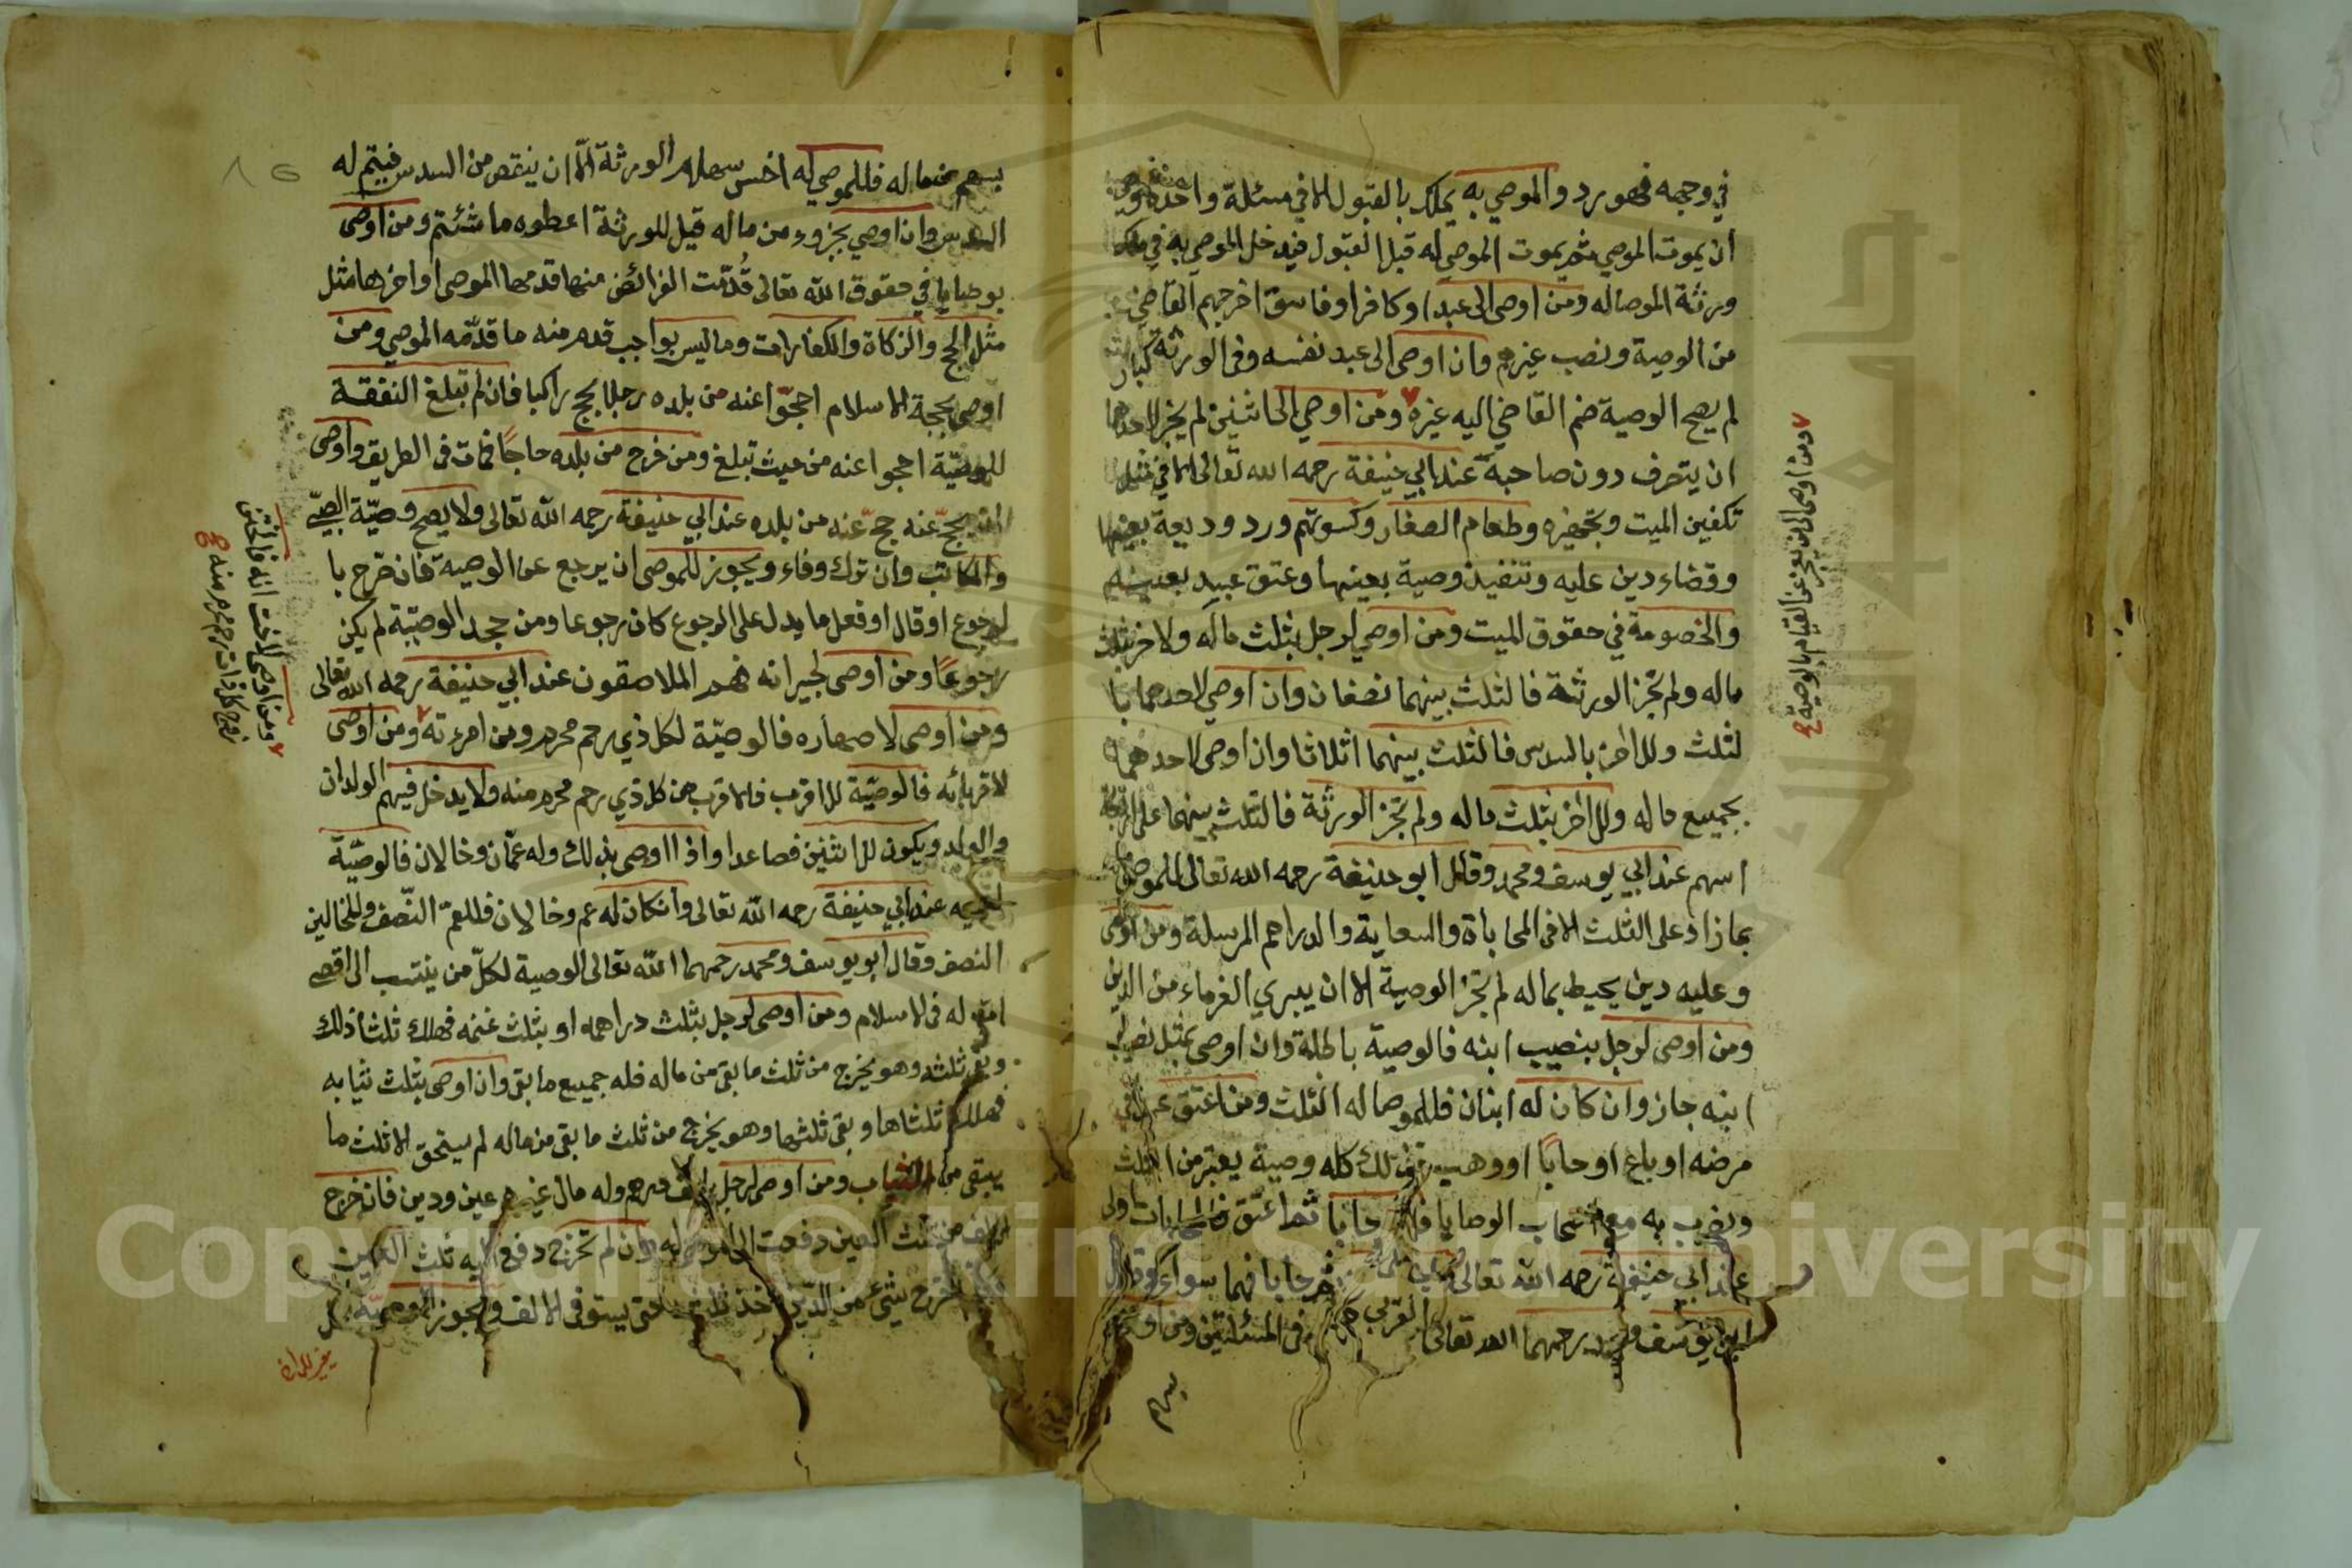 في وجهه فهو رد والموصي به يملك بالقبول الا في مسئلة واحدة وهي
ان يموت الموصي ثم يموت الموصي له قبل القبول فيدخل الموصي به في ملك
ورثة الموصا له ومن اوصى الى عبد او كافر او فاسق اخرجهم القاضي
من الوصية ونصب غيرهم وان اوصى الى عبد نفسه وفى الورثة كبار
لم يصح الوصية ضم القاضي اليه غيره ومن اوصي الى اثنين لم يجز لاحدهما
ان يتصرف دون صاحبه عند ابي حنيفة رحمه الله تعالى الا في مثل
تكفين الميت وتجهيزه وطعام الصغار وكسوتهم ورد وديعة بعينها
وقضاء دين عليه وتنفيذ وصية بعينها وعتق عبيد بعينه
والخصومة في حقوق الميت ومن اوصي لرجل بثلث ماله ولاخر بثلث
ماله ولم تجز الورثة فالثلث بينهما نصفان وان اوصي لاحدهما با
لثلث وللاخر بالسدس فالثلث بينهما اثلاثا وان اوصى لاحدهما
بجميع ماله وللاخر بثلث ماله ولم تجز الورثة فالثلث بينهما على اربعة
اسهم عند ابي يوسف ومحمد وقال ابو حنيفة رحمه الله تعالى للموصى
بما زاد على الثلث الا فى المحاباة والسعاية والدراهم المرسلة ومن اوصى
وعليه دين يحيط بماله لم تجز الوصية الا ان يبري الغرماء من الدين
ومن اوصى لرجل بنصيب ابنه فالوصية باطلة وان اوصى بمثل نصيب
ابنه جاز وان كان له ابنان فللموصا له الثلث ومن اعتق عبدا في
مرضه او باع او حابا او وهب فذلك كله وصية يعتبر من الثلث
ويضرب به مع اصحاب الوصايا فان حابا ثم اعتق فالمحابات اولى
عند ابي حنيفة رحمه الله تعالى ثم حابا فهما سواء وقال
ابو يوسف ومحمد رحمهما الله تعالى فى المسئلتين ومن اوصى
بسهم
ومن اوصى الى من يعجز عن القيام بالوصية
بسهم من ماله فللموصي له اخس سهام الورثة الا ان ينقص من السدس فيتم له
السدس وان اوصي بجزوء من ماله قيل للورثة اعطوه ما شئتم ومن اوصى
بوصايا في حقوق الله تعالى قدمت الفرائض منها قدمها الموصى او اخرها مثل
مثل الحج والزكاة والكفارات وما ليس بواجب قدم منه ما قدمه الموصي ومن
اوصى بحجة الاسلام احجوا عنه من بلده رجلا يحج راكبا فان لم تبلغ النفقة
للوصية احجوا عنه من حيث تبلغ ومن خرج من بلده حاجا فمات فى الطريق واوصى
ان يحج عنه حج عنه من بلده عند ابي حنيفة رحمه الله تعالى ولا يصح وصية الصبي
والمكاتب وان ترك وفاء ويجوز للموصى ان يرجع عن الوصية فان صرح با
لرجوع او قال او فعل ما يدل على الرجوع كان رجوعا ومن جحد الوصية لم يكن
رجوعا ومن اوصى لجيرانه فهم الملاصقون عند ابي حنيفة رحمه الله تعالى
ومن اوصى لاصهاره فالوصية لكل ذي رحم محرم ومن امرءته ومن اوصى
لاقربائه فالوصية للاقرب فالاقرب من كل ذي رحم محرم منه ولا يدخل فيهم الولدان
والولد ويكون للاثنين فصاعدا واذا اوصى بذلك وله عمان وخالان فالوصية
لعميه عند ابي حنيفة رحمه الله تعالى وانكان له عم وخالان فللعم النصف وللخالين
النصف وقال ابو يوسف ومحمد رحمهما الله تعالى الوصية لكل من ينتسب الى اقصى
اب له فى الاسلام ومن اوصى لرجل بثلث دراهمه او بثلث غنمه فهلك ثلثا ذلك
وبقي ثلثه وهو يخرج من ثلث ما بقي من ماله فله جميع ما بقي وان اوصى بثلث ثيابه
فهلك ثلثاها وبقى ثلثها وهو يخرج من ثلث ما بقي من ماله لم يستحق الا ثلث ما
يبقى من الثياب ومن اوصى لرجل بالف درهم وله مال عين ودين فان خرج
الالف من ثلث العين دفعت الى الموصى له وان لم تخرج دفع اليه ثلث العين
خرج شيء من الدين اخذ ثلثه حتى يستوفى الالف ويجوز الوصية
ومن اوصى لاختانه فالختن
زوج كل ذات رحم محرم منه